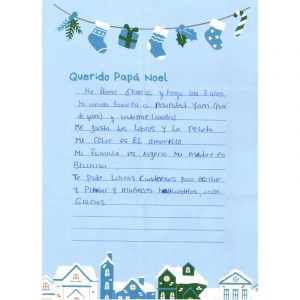 Querido Papá Noel
Me llamo Etinosa y tengo los 3 años.
Mi comida favorita es Pounded Yam (puré
de yam) y indomie (noodles).
Me gusta los Libros y La Pelota
Mi color es EL amarillo
Mi familia es Negera Mi madre es
Blikisu
Te pido Libros Cuadernos para escribir
y Pintar y muñecos
Gracias